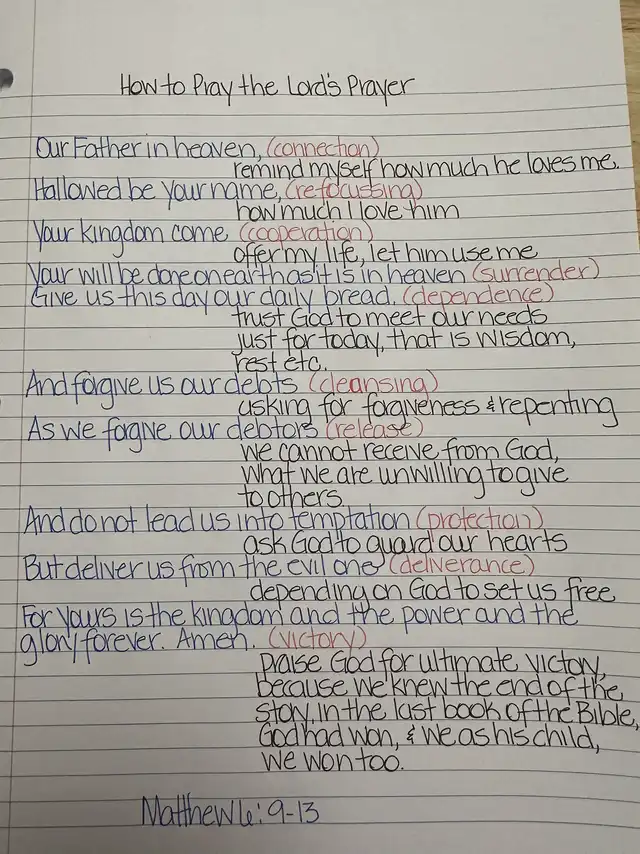 How to Pray the Lord's Prayer
Our Father in heaven, (connection)
remind myself how much he loves me.
Hallowed be your name, (refocussing)
how much I love him
Your kingdom come (cooperation)
offer my life, let him use me
Your will be done on earth as it is in heaven (surrender)
Give us this day our daily bread. (dependence)
trust God to meet our needs
just for today, that is wisdom,
rest etc.
And forgive us our debts (cleansing)
asking for forgiveness & repenting
As we forgive our debtors (release)
We cannot receive from God,
What we are unwilling to give
to others.
And do not lead us into temptation (protection)
ask God to guard our hearts
But deliver us from the evil one (deliverance)
depending on God to set us free
For Yours is the kingdom and the power and the
glory forever. Amen. (victory)
praise God for ultimate victory,
because we knew the end of the
story, in the last book of the Bible,
God had won, & we as his child,
we won too.
Matthew 6:9-13